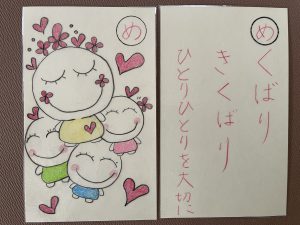 め
め
くばり
きくばり
ひとりひとりを大切に